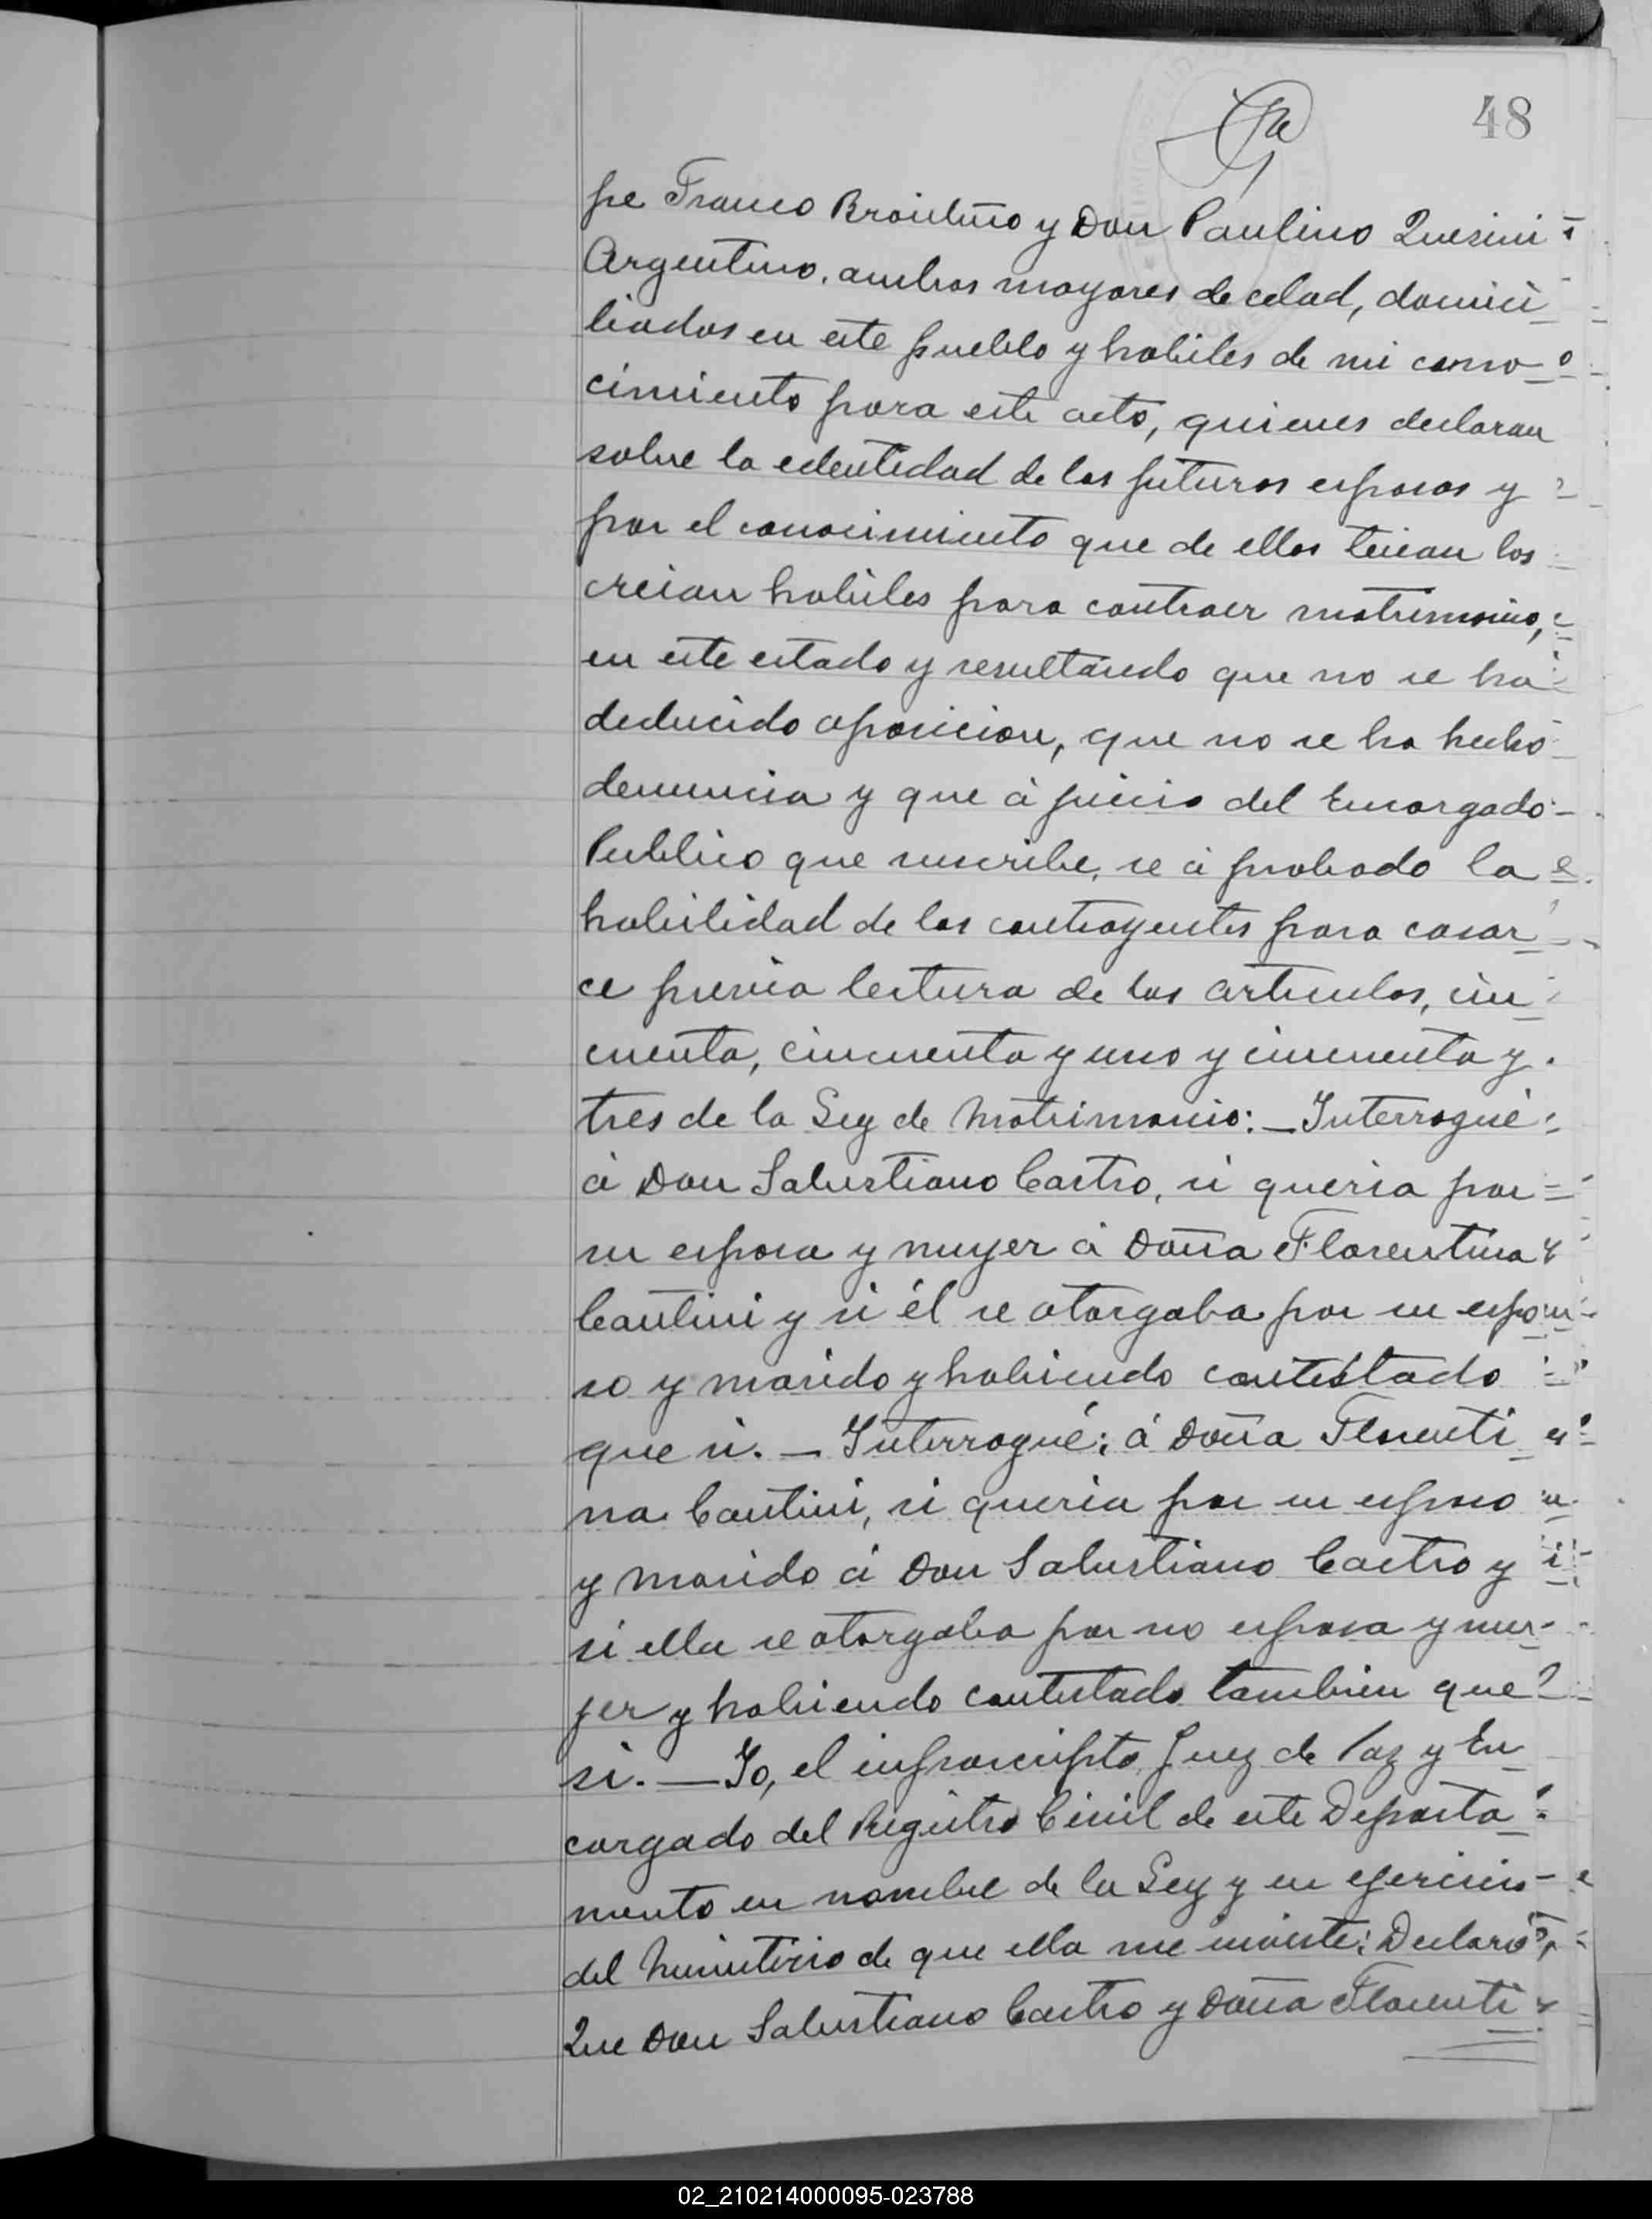 48
pe Franco Brasileño y Don Paulino Quesini
Argentino, ambos mayores de edad, domici
liados en este pueblo y habiles de mi cono
cimiento para este acto, quienes declaran
sobre la edentidad de los futuros esposos y
por el conocimiento que de ellos tenian los
creian habiles para contraer matrimonio,
en este estado y resultando que no se ha
deducido oposicion, que no se ha hecho
denuncia y que á juicio del Encargado
Publico que suscribe, se á probado la
habilidad de los contrayentes para casar
ce previa lectura de los articulos, cin
cuenta, cincuenta y uno y cincuenta y
tres de la Ley de Matrimonio:_Interrogué
á Don Salustiano Castro, si queria por
su esposa y muyer á Doña Florentina
Cantini y si él se otorgaba por su espo
so y marido y habiendo contestado
que si._Interrogué: á Doña Florenti
na Cantini, si queria por su esposo
y marido á Don Salustiano Castro y
si ella se otorgaba por su esposa y mu
jer y habiendo contestado tambien que
si._Yo, el infrascripto Juez de Paz y En
cargado del Registro Civil de este Departa
mento en nombre de la Ley y en ejercicio
del Ministerio de que ella me inviste: Declaro
Que Don Salustiano Castro y Doña Florenti
02_210214000095-023788